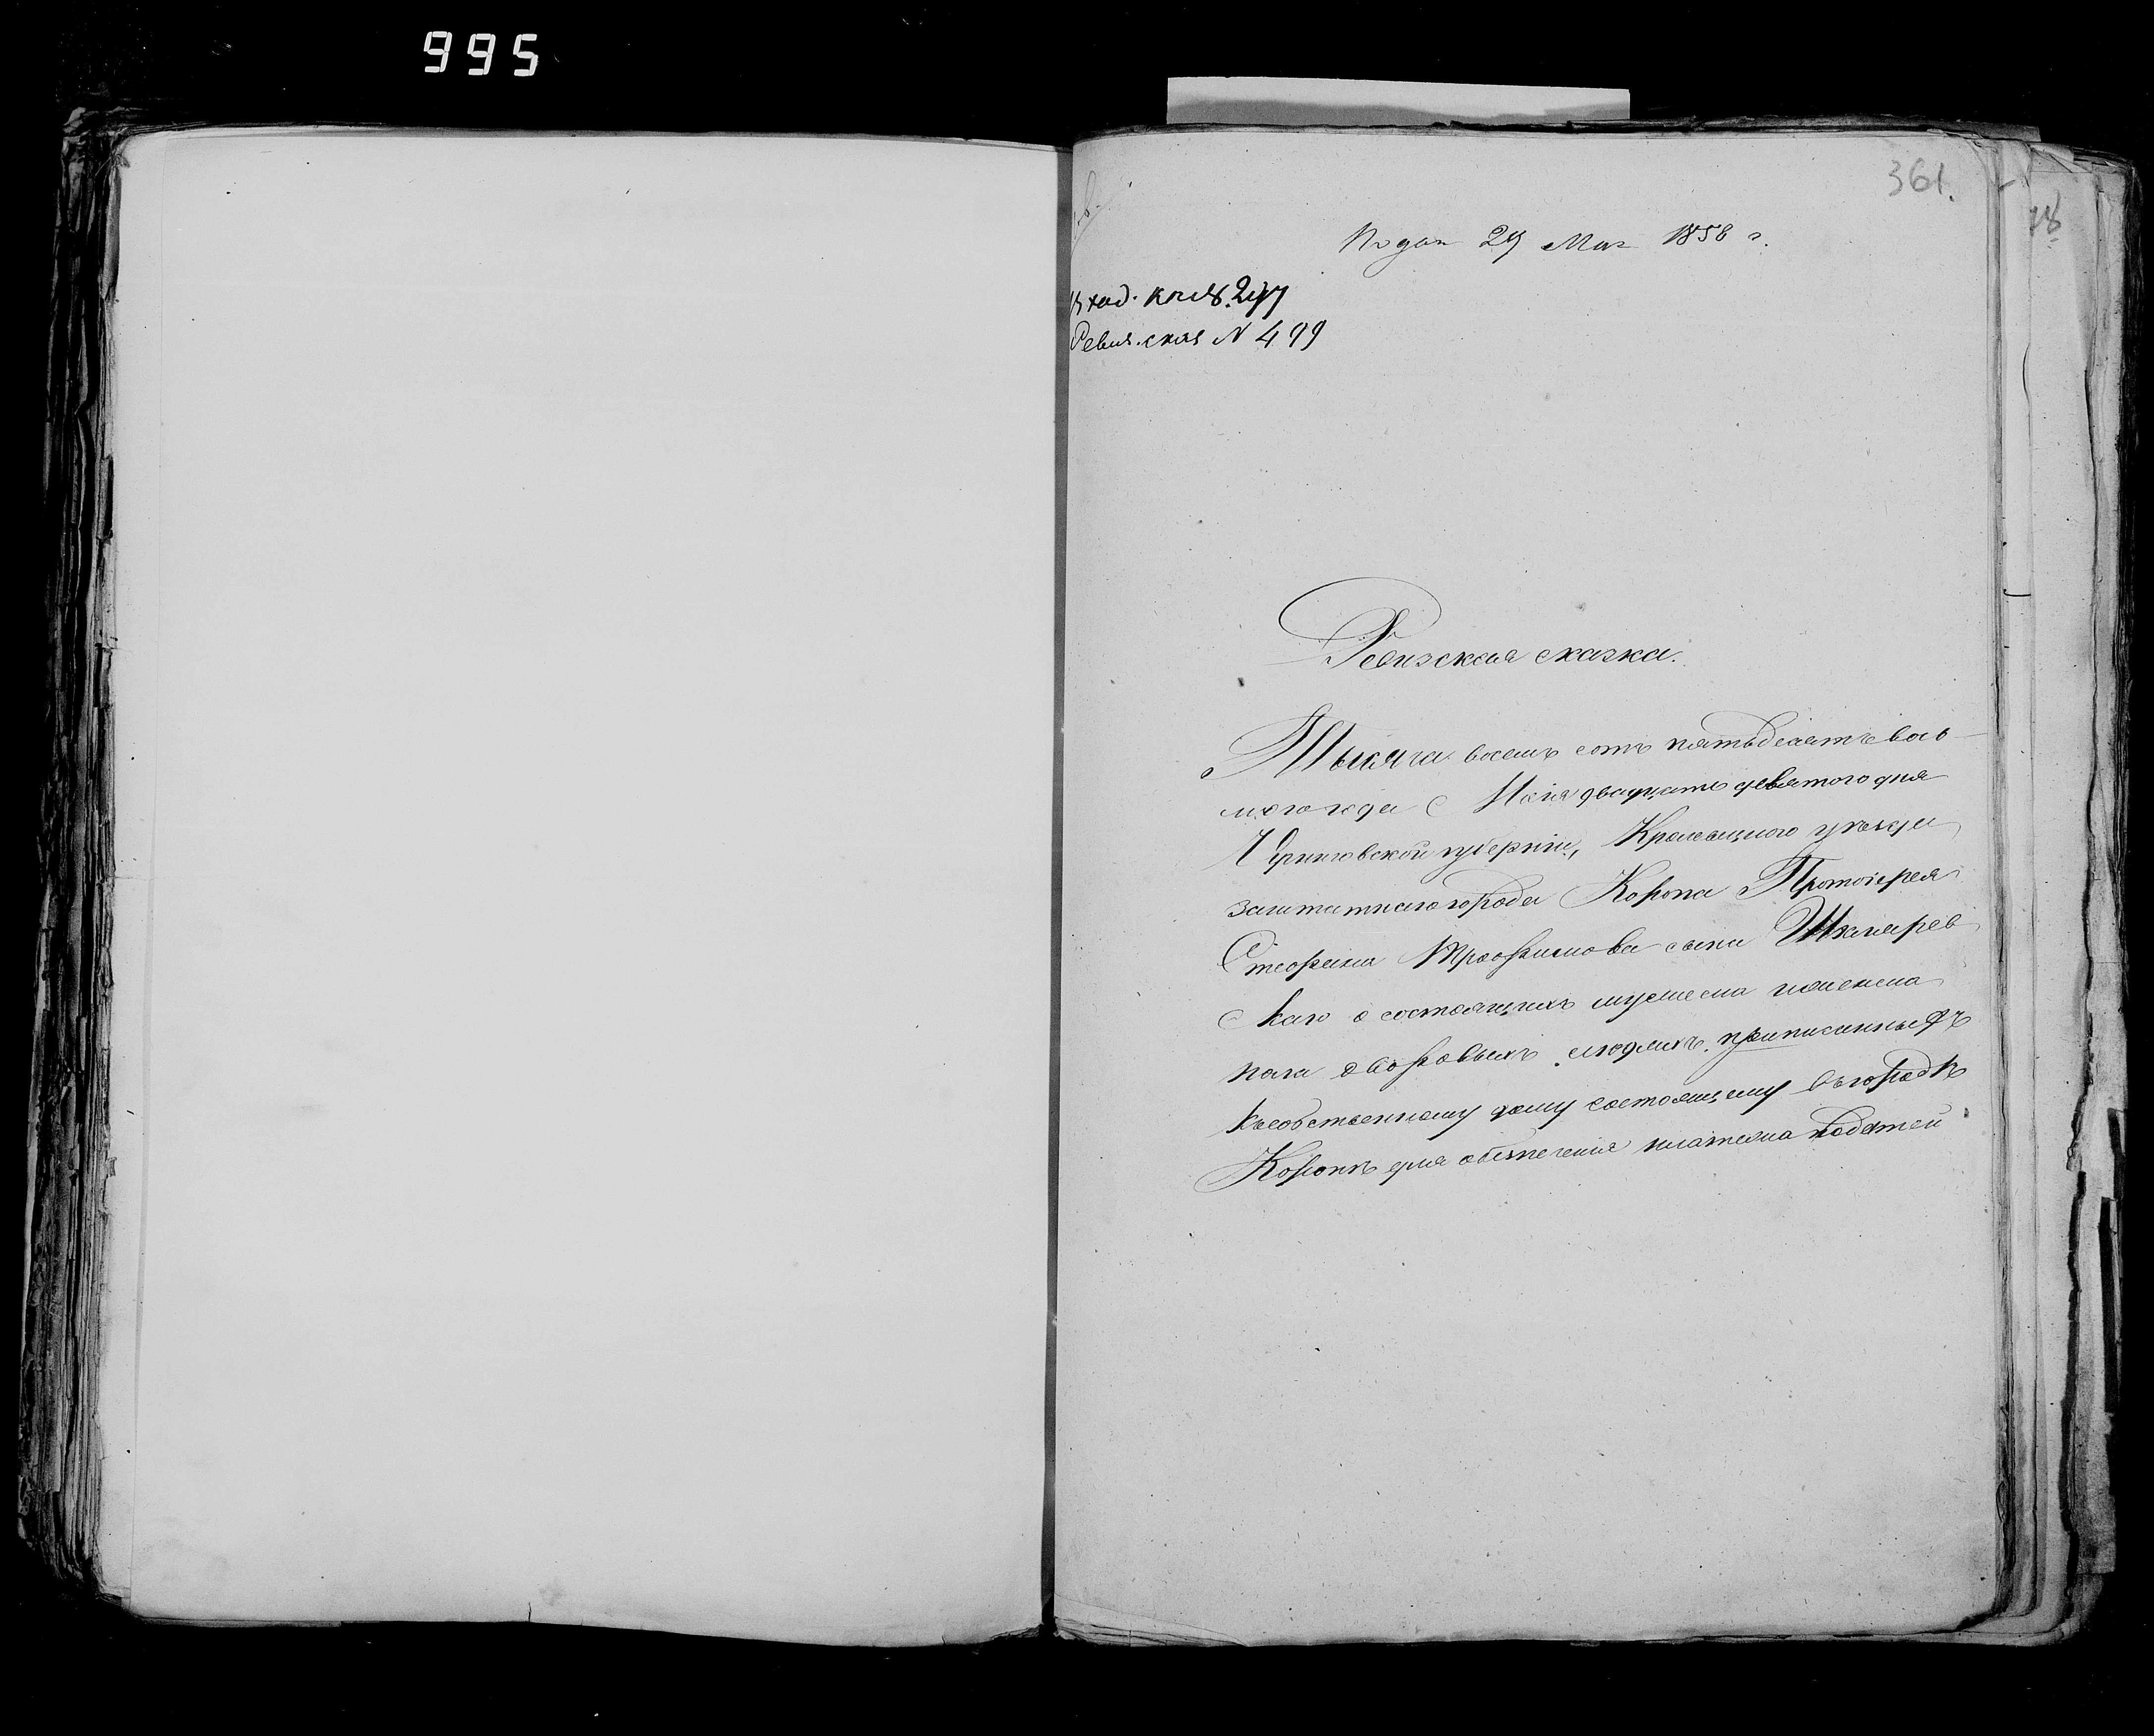 995
361.
Подан 29 Мая 1858 г.
Вход.
Ревиз. сказ N 499
Ревизская сказка.
Тысяча восемь сотъ пятьдесятъ вось
мого года Маія двадцать девятого дня
Черниговской губерніи, Кролевецкого уѣзда
заштатного города Коропа Протоіерея
Стефана Трофимова сына Шклярев
скаго о состоящихъ мужеска и женска
пола дворовыхъ людяхъ приписанныхъ
къ собственному дому состоящему въ городѣ
Коропѣ для обезпеченія платежа податей